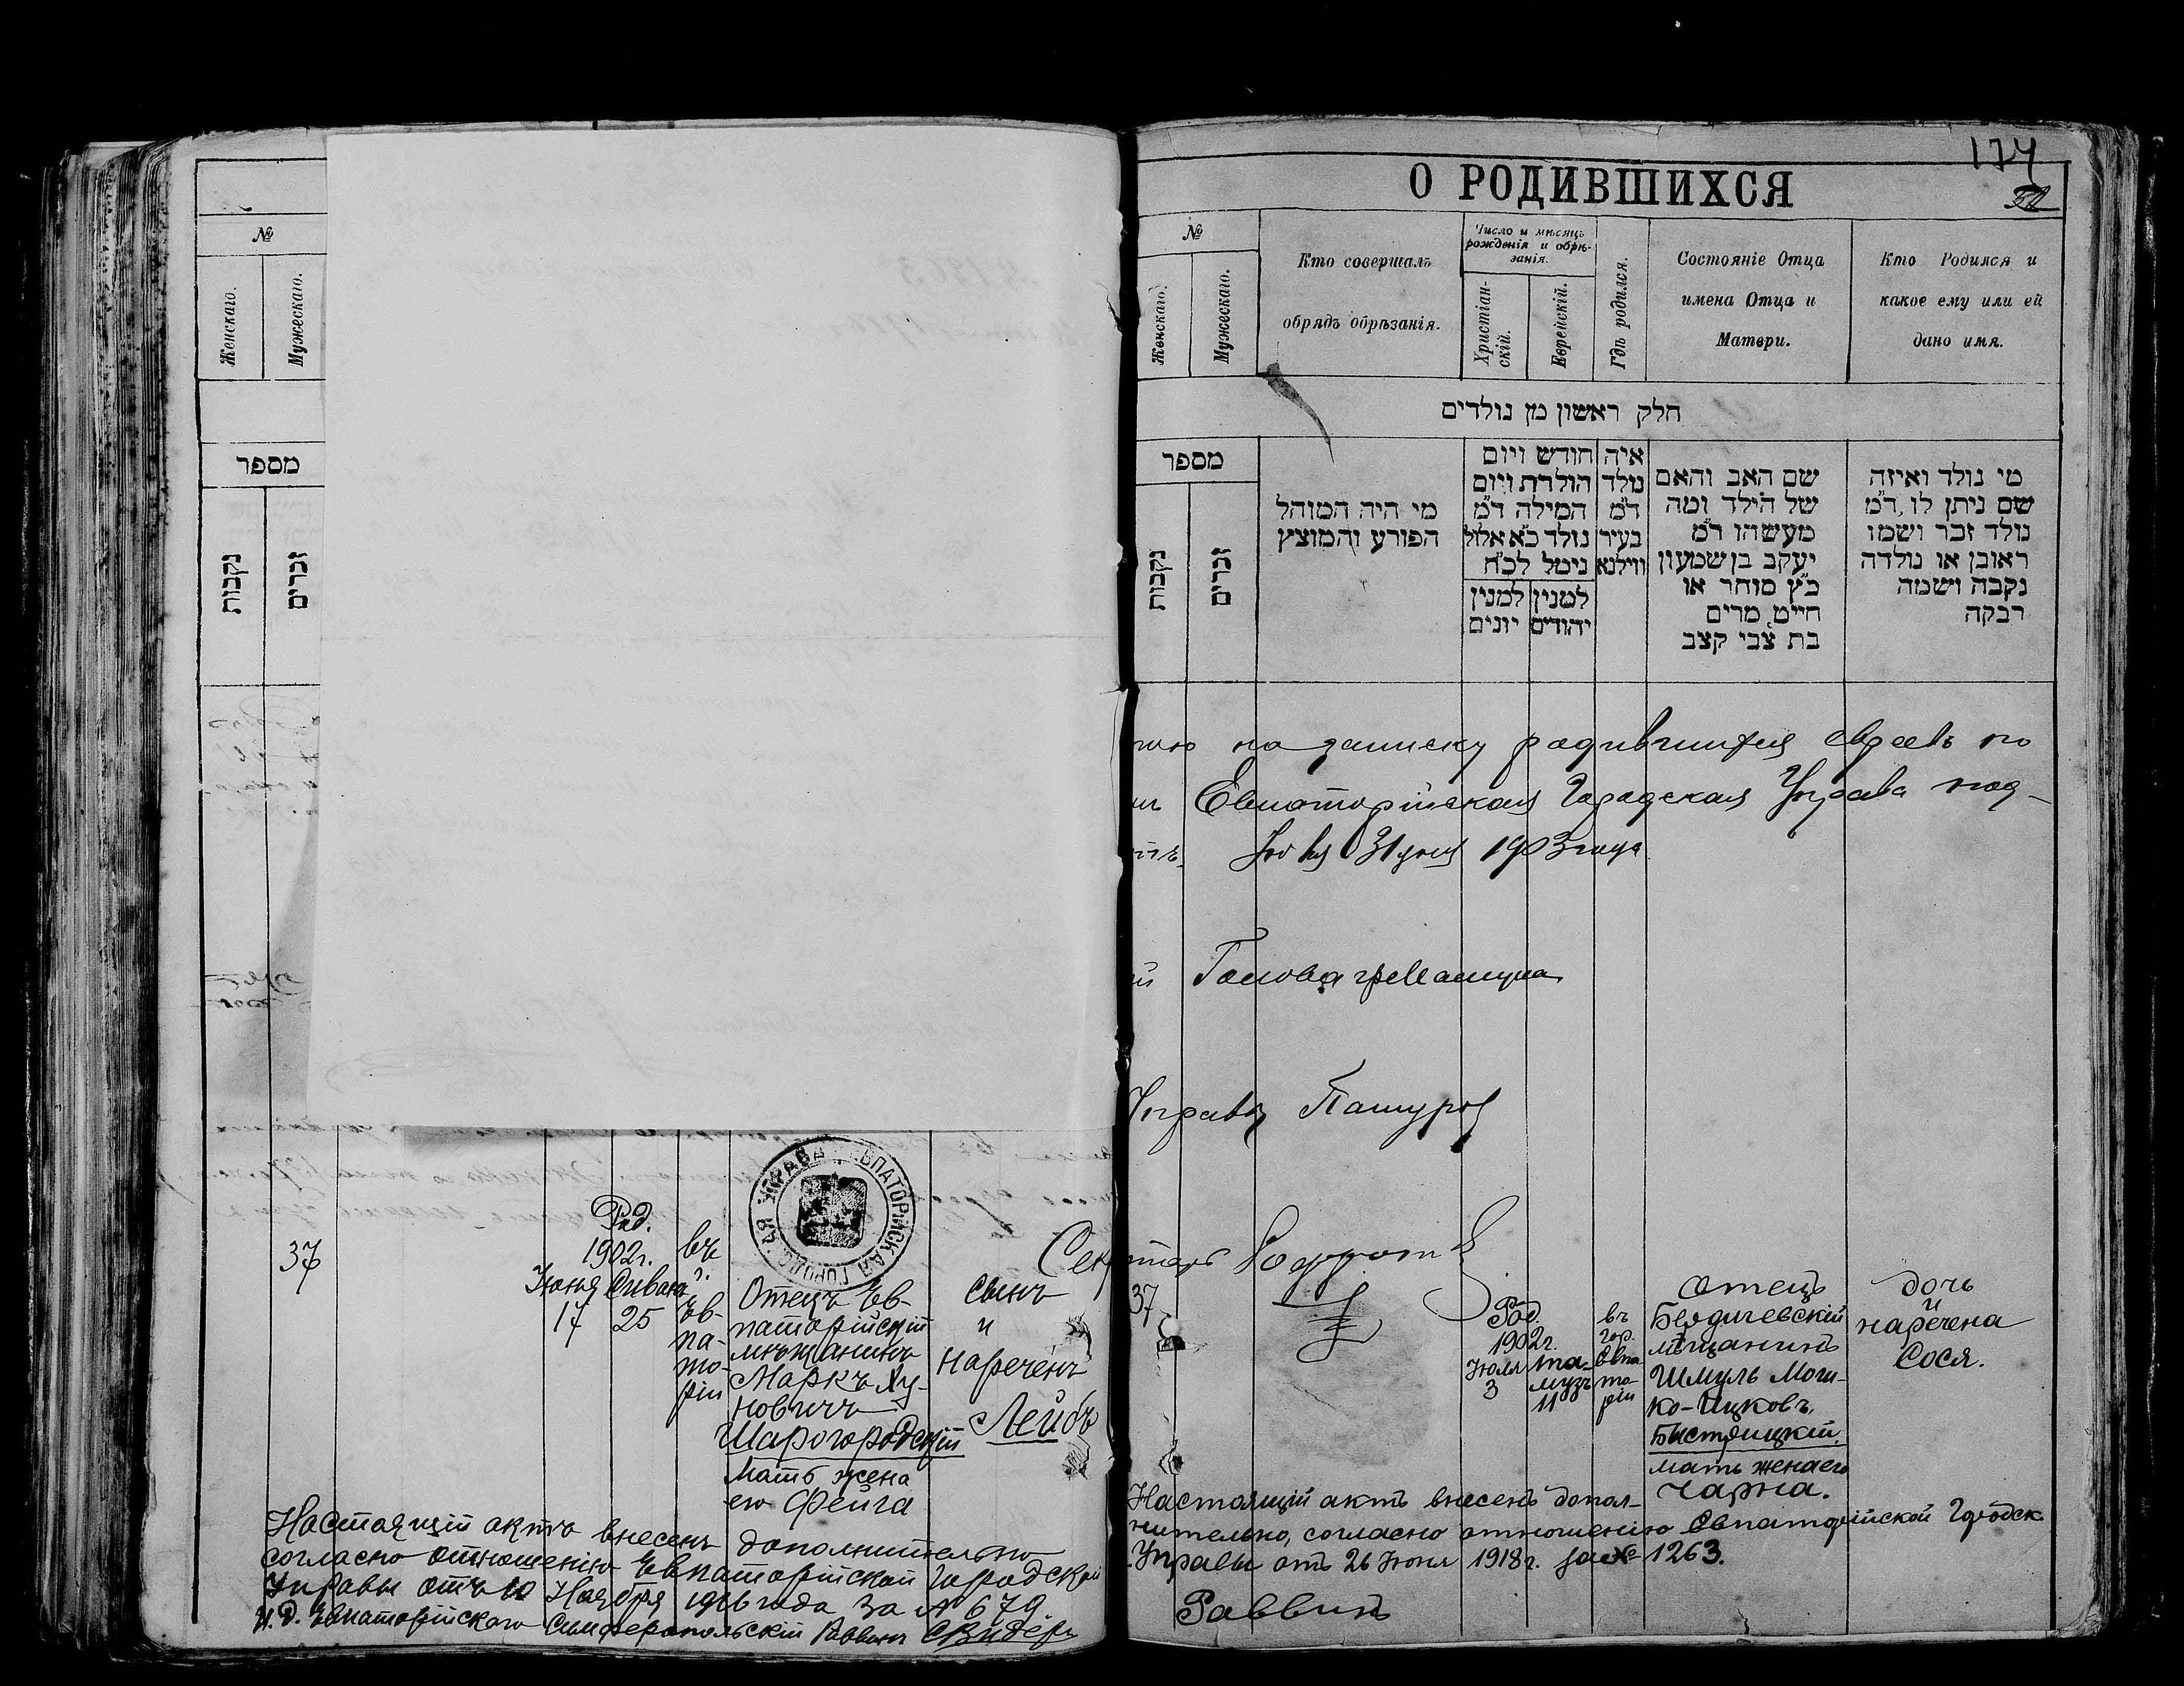 №
Женскаго.
Мужескаго.
מספר
נקבות
זכרים
37
Род.
1902г.
въ
Іюня Сивана
г.
17 25
Ев-
па-
то-
ріи
Отецъ Ев-
паторійскій
мѣщанинъ
Маркъ Ху-
новичъ
Шарогородскій
Мать жена
его Фейга
сынъ
и
нареченъ
Лейбъ
Настоящій актъ внесенъ дополнительно
согласно отношенію Евпаторійской Городской
Управы отъ 10 Ноября 1916 года за № 679.
И.д. Евпаторійскаго Симферопольскій Раввинъ
174
О РОДИВШИХСЯ
№
Женскаго.
Мужескаго.
Кто совершалъ
обрядъ обрѣзанія.
Число и мѣсяцъ
рожденія и обрѣ-
занія.
Христіан-
скій.
Еврейскій.
Гдѣ родился.
Состояніе Отца
имена Отца и
Матери.
Кто Родился и
какое ему или ей
дано имя.
חלק ראשון מן נולדים
מספר
נקבות
זכרים
מי היה המוהל
הפורע והמוצץ
חודש ויום
הולדת ויום
המילה ד״מ
נולד כ״א אלול
נימל לכ״ח
למנין יונים
למנין יהודים
איה
נולד
ד״מ
בעיר
ווילנא
שם האב והאם
של הילד ומה
מעשהו ד״מ
יעקב בן שמעון
כ״ץ סוחר או
חייט מרים
בת צבי קצב
מי נולד ואיזה
שם ניתן לו ד״מ
נולד זכר ושמו
ראובן או נולדה
נקבה ושמה
רבקה
на записку родившихся евреевъ по
Евпаторійская Городская Управа под-
Іюля 31 дня 1903 года
Управы
Секретарь
37
Род.
1902г.
Іюля
3
та-
музъ
11
въ
гор.
Евпа-
то-
ріи
Отецъ
Бердичевскій
мѣщанинъ
Шмуль Мош-
ко-Ицковъ
Быстрицкій.
мать жена его
Чарна.
дочь
и
наречена
Сося.
Настоящій актъ внесенъ допол-
нительно, согласно отношенію Евпаторійской Городск.
Управы отъ 26 Іюня 1918г. за № 1263.
Раввинъ